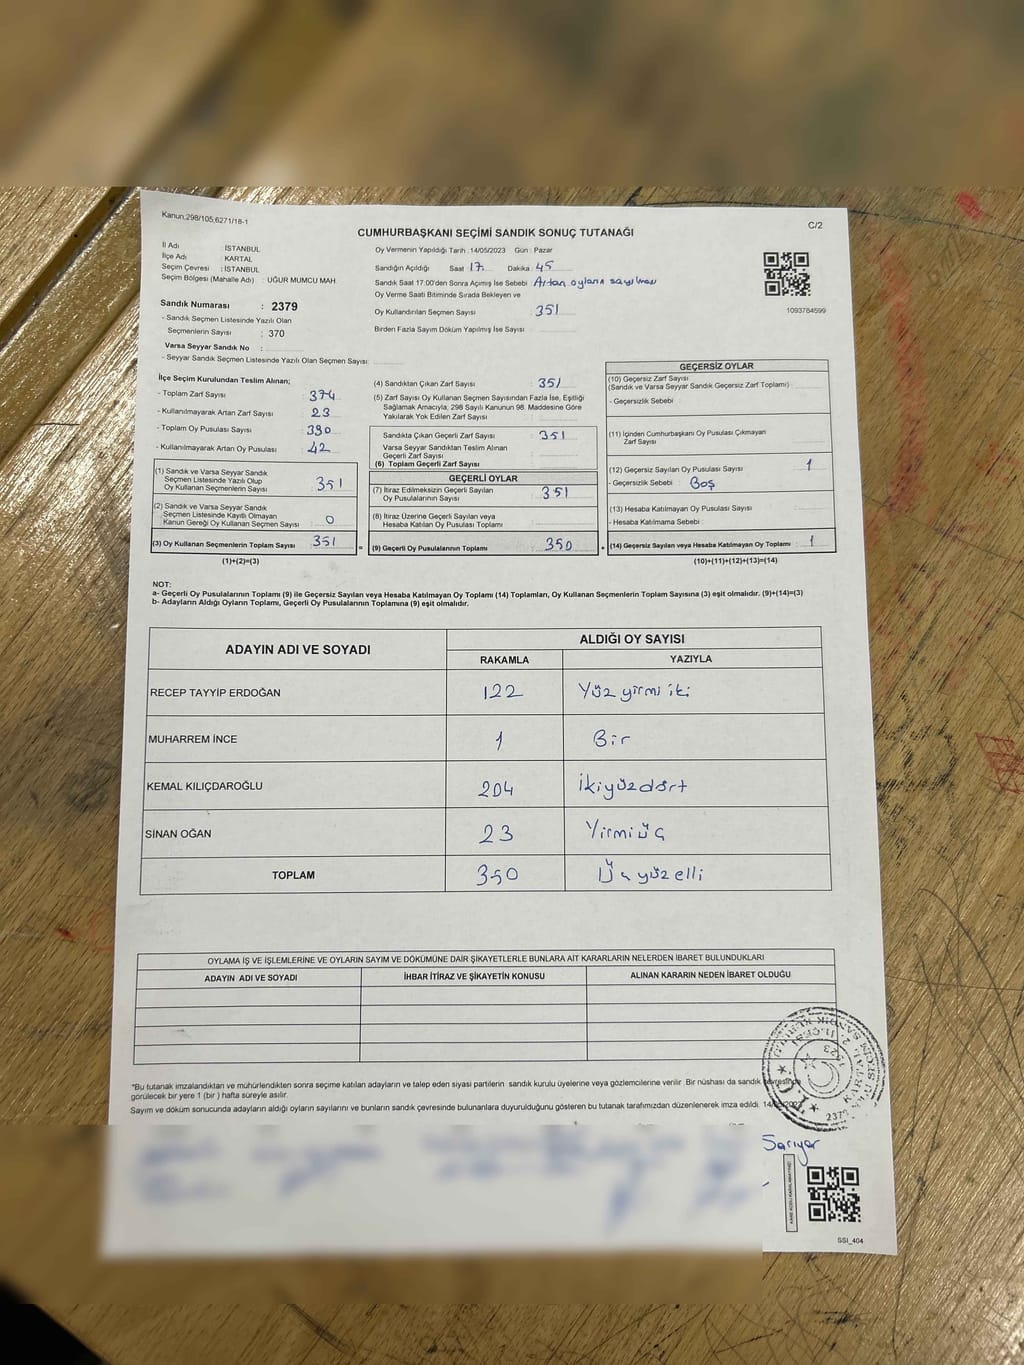 Kanun;298/105;6271/18-1
C/2
CUMHURBAŞKANI SEÇİMİ SANDIK SONUÇ TUTANAĞI
İl Adı : İSTANBUL
İlçe Adı : KARTAL
Seçim Çevresi : İSTANBUL
Seçim Bölgesi (Mahalle Adı) : UĞUR MUMCU MAH
Oy Vermenin Yapıldığı Tarih : 14/05/2023 Gün : Pazar
Sandığın Açıldığı Saat 17 Dakika : 45
Sandık Saat 17:00'den Sonra Açımış İse Sebebi Artan oyların sayılması
Oy Verme Saati Bitiminde Sırada Bekleyen ve
Oy Kullandırılan Seçmen Sayısı : 351
Birden Fazla Sayım Döküm Yapılmış İse Sayısı :
1093784599
Sandık Numarası : 2379
- Sandık Seçmen Listesinde Yazılı Olan
Seçmenlerin Sayısı : 370
Varsa Seyyar Sandık No :
- Seyyar Sandık Seçmen Listesinde Yazılı Olan Seçmen Sayısı:
İlçe Seçim Kurulundan Teslim Alınan;
- Toplam Zarf Sayısı : 374
- Kullanılmayarak Artan Zarf Sayısı : 23
- Toplam Oy Pusulası Sayısı : 390
- Kullanılmayarak Artan Oy Pusulası : 42
(1) Sandık ve Varsa Seyyar Sandık
Seçmen Listesinde Yazılı Olup
Oy Kullanan Seçmenlerin Sayısı : 351
(2) Sandık ve Varsa Seyyar Sandık
Seçmen Listesinde Kayıtlı Olmayan
Kanun Gereği Oy Kullanan Seçmen Sayısı : 0
(3) Oy Kullanan Seçmenlerin Toplam Sayısı : 351
(1)+(2)=(3)
(4) Sandıktan Çıkan Zarf Sayısı : 351
(5) Zarf Sayısı Oy Kullanan Seçmen Sayısından Fazla İse, Eşitliği
Sağlamak Amacıyla; 298 Sayılı Kanunun 98. Maddesine Göre
Yakılarak Yok Edilen Zarf Sayısı :
Sandıkta Çıkan Geçerli Zarf Sayısı : 351
Varsa Seyyar Sandıktan Teslim Alınan
Geçerli Zarf Sayısı :
(6) Toplam Geçerli Zarf Sayısı
GEÇERLİ OYLAR
(7) İtiraz Edilmeksizin Geçerli Sayılan
Oy Pusulalarının Sayısı : 351
(8) İtiraz Üzerine Geçerli Sayılan veya
Hesaba Katılan Oy Pusulası Toplamı :
= (9) Geçerli Oy Pusulalarının Toplamı : 350
GEÇERSİZ OYLAR
(10) Geçersiz Zarf Sayısı
(Sandık ve Varsa Seyyar Sandık Geçersiz Zarf Toplamı) :
- Geçersizlik Sebebi :
(11) İçinden Cumhurbaşkanı Oy Pusulası Çıkmayan
Zarf Sayısı :
(12) Geçersiz Sayılan Oy Pusulası Sayısı : 1
- Geçersizlik Sebebi : Boş
(13) Hesaba Katılmayan Oy Pusulası Sayısı :
- Hesaba Katılmama Sebebi :
+ (14) Geçersiz Sayılan veya Hesaba Katılmayan Oy Toplamı : 1
(10)+(11)+(12)+(13)=(14)
NOT:
a- Geçerli Oy Pusulalarının Toplamı (9) ile Geçersiz Sayılan veya Hesaba Katılmayan Oy Toplamı (14) Toplamları, Oy Kullanan Seçmenlerin Toplam Sayısına (3) eşit olmalıdır. (9)+(14)=(3)
b- Adayların Aldığı Oyların Toplamı, Geçerli Oy Pusulalarının Toplamına (9) eşit olmalıdır.
ADAYIN ADI VE SOYADI ALDIĞI OY SAYISI
RAKAMLA YAZIYLA
RECEP TAYYİP ERDOĞAN 122 Yüz yirmi iki
MUHARREM İNCE 1 Bir
KEMAL KILIÇDAROĞLU 204 İkiyüzdört
SİNAN OĞAN 23 Yirmiüç
TOPLAM 350 Üçyüzelli
OYLAMA İŞ VE İŞLEMLERİNE VE OYLARIN SAYIM VE DÖKÜMÜNE DAİR ŞİKAYETLERLE BUNLARA AİT KARARLARIN NELERDEN İBARET BULUNDUKLARI
ADAYIN ADI VE SOYADI İHBAR İTİRAZ VE ŞİKAYETİN KONUSU ALINAN KARARIN NEDEN İBARET OLDUĞU
*Bu tutanak imzalandıktan ve mühürlendikten sonra seçime katılan adayların ve talep eden siyasi partilerin sandık kurulu üyelerine veya gözlemcilerine verilir. Bir nüshası da sandık çevresinde
görülecek bir yere 1 (bir) hafta süreyle asılır.
Sayım ve döküm sonucunda adayların aldığı oyların sayılarını ve bunların sandık çevresinde bulunanlara duyurulduğunu gösteren bu tutanak tarafımızdan düzenlenerek imza edildi. 14/05/2023
T.C.
2379
Sarıyer
SSI_404